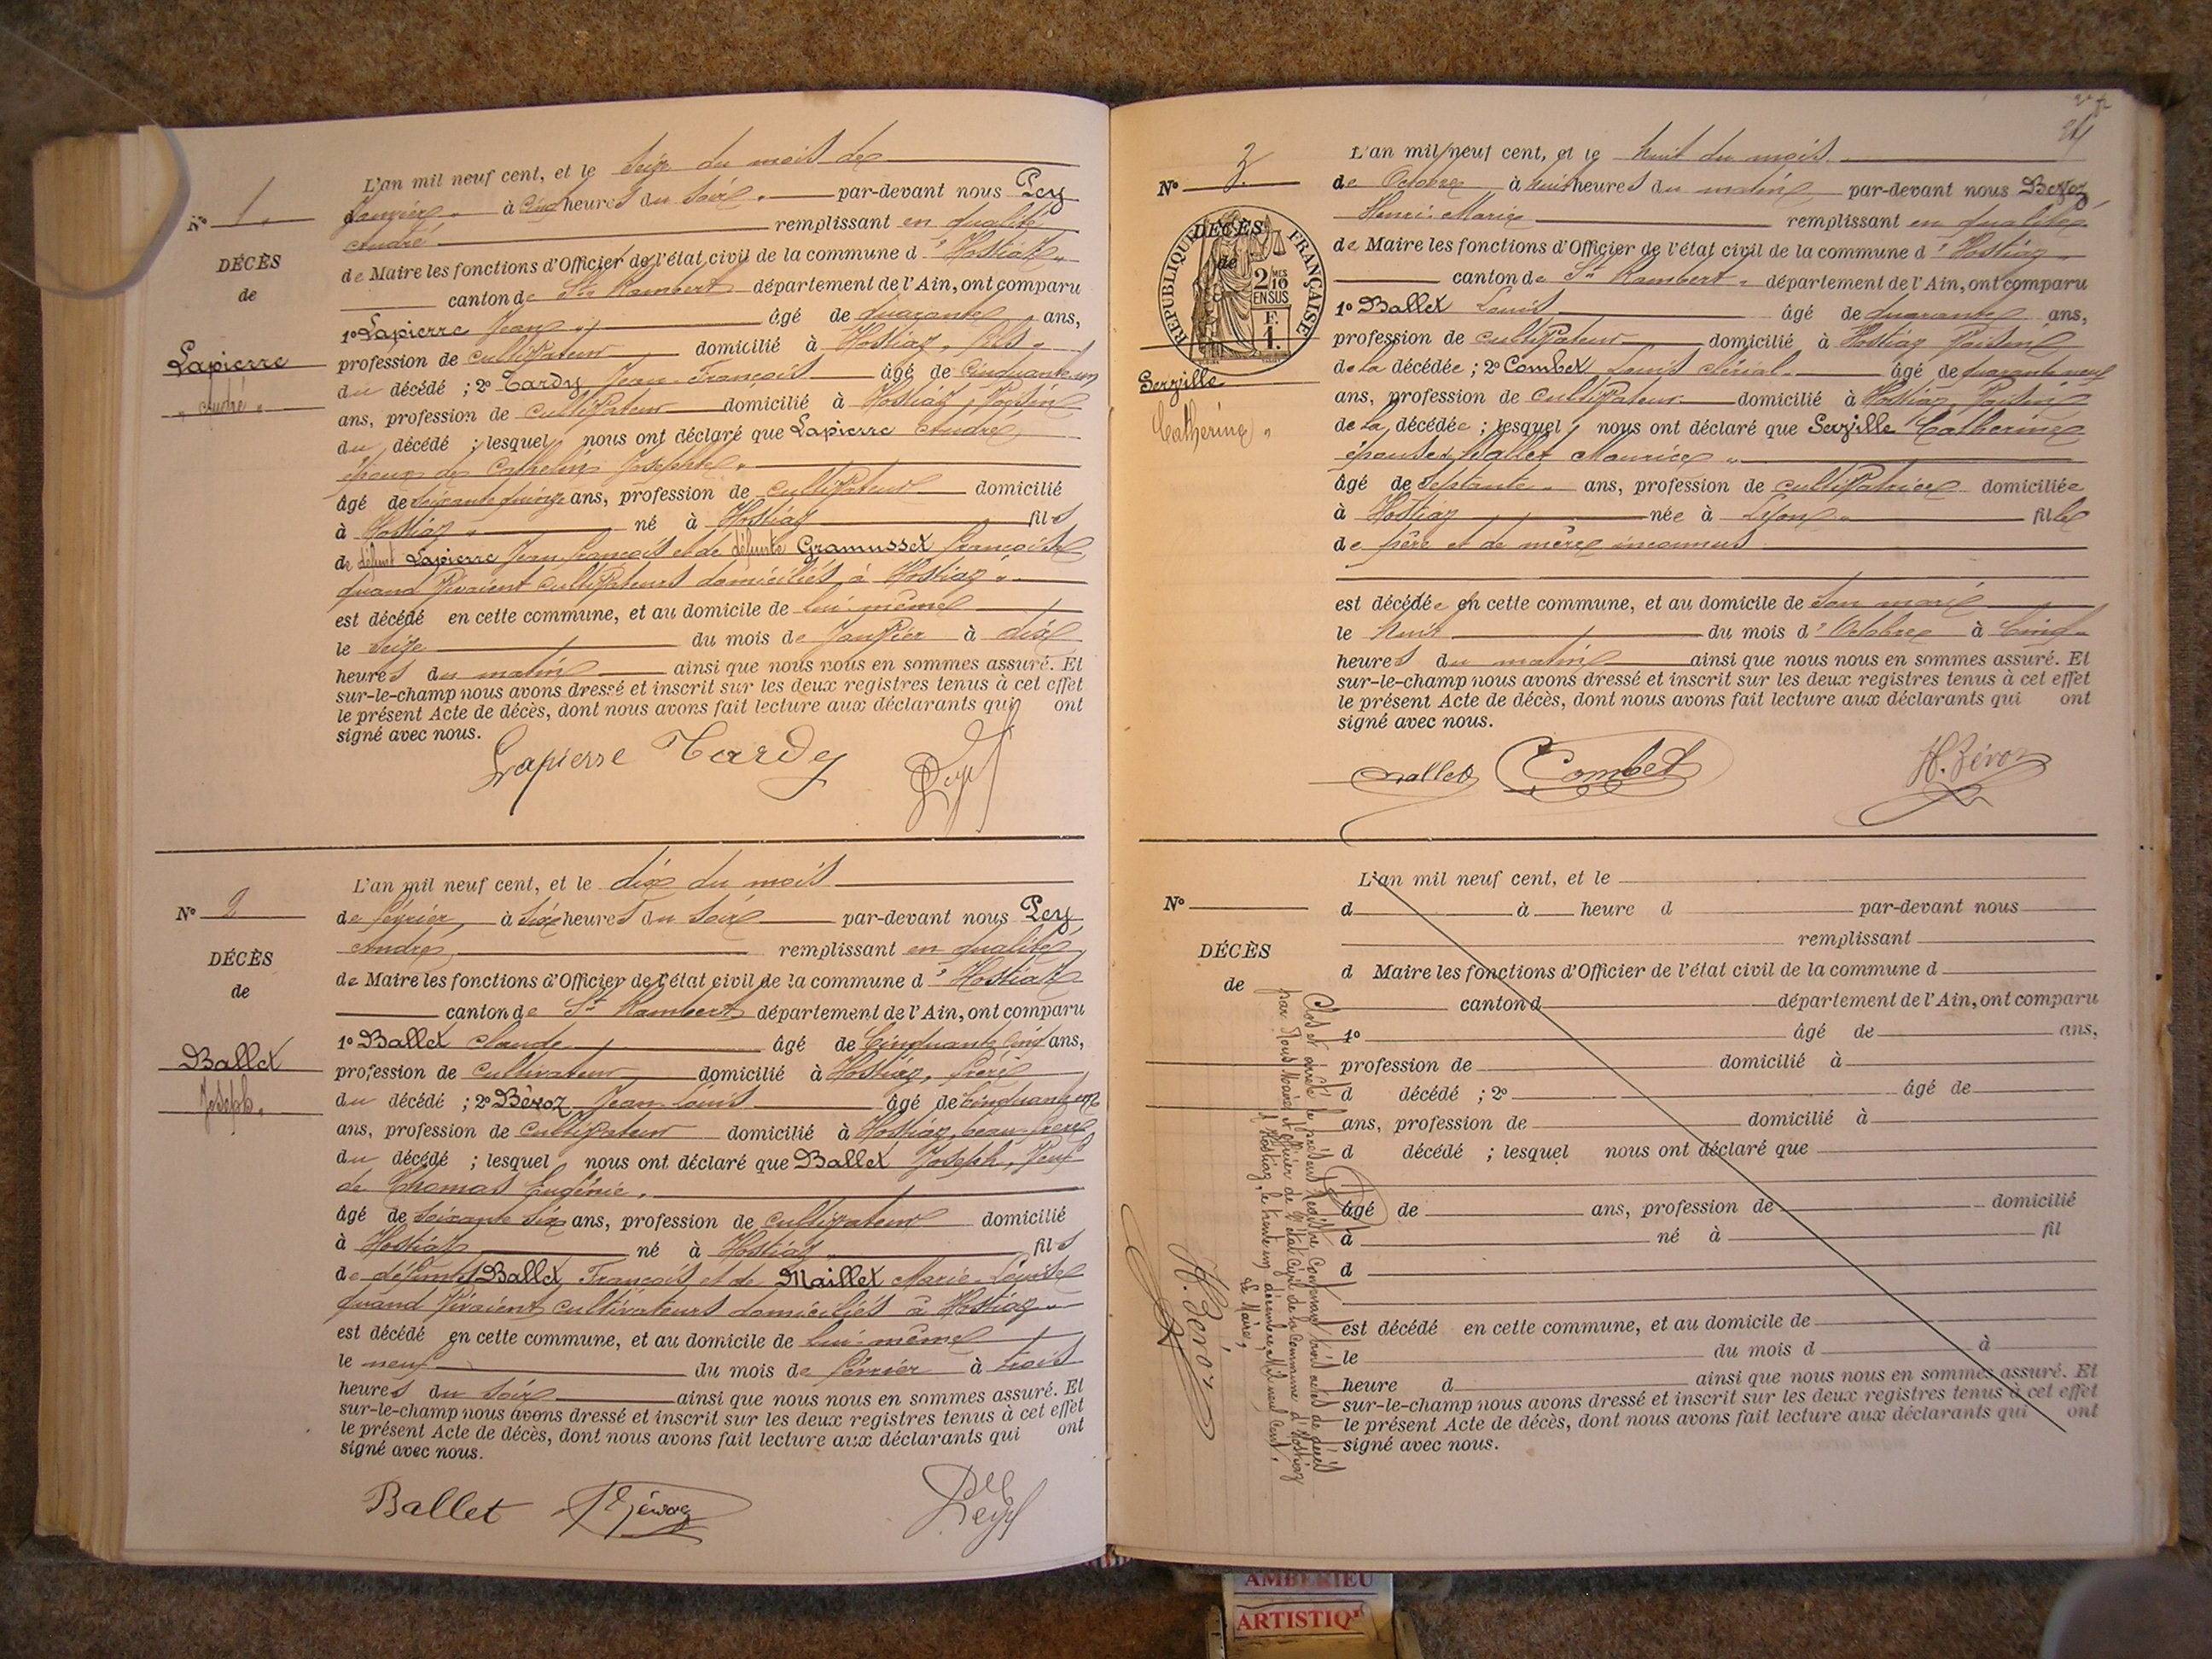 N° 1.
DÉCÈS
de
Lapierre
André
L'an mil neuf cent, et le Seize du mois de
Janvier à Cinq heures du soir par-devant nous Pey
André remplissant en qualité
de Maire les fonctions d'Officier de l'état civil de la commune d'Hostiaz
canton de St Rambert département de l'Ain, ont comparu
1° Lapierre Jean âgé de quarante ans,
profession de cultivateur domicilié à Hostiaz, fils
du décédé ; 2° Tardy Jean François âgé de Cinquante un
ans, profession de cultivateur domicilié à Hostiaz, voisin
du décédé ; lesquels nous ont déclaré que Lapierre André
époux de Cathelin Josephte
âgé de soixante quinze ans, profession de cultivateur domicilié
à Hostiaz né à Hostiaz fils
de défunt Lapierre Jean François et de défunte Gramusset Françoise
quand vivaient cultivateurs domiciliés à Hostiaz
est décédé en cette commune, et au domicile de lui-même
le seize du mois de Janvier à dix
heures du matin ainsi que nous nous en sommes assuré. Et
sur-le-champ nous avons dressé et inscrit sur les deux registres tenus à cet effet
le présent Acte de décès, dont nous avons fait lecture aux déclarants qui ont
signé avec nous.
Lapierre Tardy Pey
N° 2
DÉCÈS
de
Ballet
Joseph.
L'an mil neuf cent, et le dix du mois
de février à six heures du soir par-devant nous Pey
André remplissant en qualité
de Maire les fonctions d'Officier de l'état civil de la commune d'Hostiaz
canton de St Rambert département de l'Ain, ont comparu
1° Ballet Claude âgé de Cinquante cinq ans,
profession de cultivateur domicilié à Hostiaz, frère
du décédé ; 2° Béroz Jean Louis âgé de cinquante un
ans, profession de cultivateur domicilié à Hostiaz, beau-frère
du décédé ; lesquel nous ont déclaré que Ballet Joseph, veuf
de Thomas Eugénie,
âgé de soixante six ans, profession de cultivateur domicilié
à Hostiaz né à Hostiaz fils
de défunts Ballet François et de Maillet Marie-Louise
quand vivaient cultivateurs domiciliés à Hostiaz
est décédé en cette commune, et au domicile de lui-même
le neuf du mois de février à trois
heures du soir ainsi que nous nous en sommes assuré. Et
sur-le-champ nous avons dressé et inscrit sur les deux registres tenus à cet effet
le présent Acte de décès, dont nous avons fait lecture aux déclarants qui ont
signé avec nous.
Ballet Béroz Pey
N° 3.
DÉCÈS
de
RÉPUBLIQUE FRANÇAISE
2 MES
10 ENSUS
F.
1.
Serzille
Catherine
L'an mil neuf cent, et le huit du mois
de Octobre à huit heures du matin par-devant nous Béroz
Henri-Marie remplissant en qualité
de Maire les fonctions d'Officier de l'état civil de la commune d'Hostiaz
canton de St Rambert département de l'Ain, ont comparu
1° Ballet Louis âgé de quarante ans,
profession de cultivateur domicilié à Hostiaz voisin
de la décédée ; 2° Combet Louis Clérial âgé de quarante neuf
ans, profession de cultivateur domicilié à Hostiaz, voisin
de la décédée ; lesquel nous ont déclaré que Serzille Catherine
épouse de Ballet Maurice
âgé de septante ans, profession de cultivatrice domiciliée
à Hostiaz née à Lyon fille
de père et de mère inconnus
est décédée en cette commune, et au domicile de son mari
le huit du mois d'Octobre à Cinq
heures du matin ainsi que nous nous en sommes assuré. Et
sur-le-champ nous avons dressé et inscrit sur les deux registres tenus à cet effet
le présent Acte de décès, dont nous avons fait lecture aux déclarants qui ont
signé avec nous.
Ballet Combet H. Béroz
N°
DÉCÈS
de
L'an mil neuf cent, et le
d à heure d par-devant nous
remplissant
d Maire les fonctions d'Officier de l'état civil de la commune d
canton d département de l'Ain, ont comparu
1° âgé de ans,
profession de domicilié à
d décédé ; 2° âgé de
ans, profession de domicilié à
d décédé ; lesquel nous ont déclaré que
âgé de ans, profession de domicilié
à né à fil
d
est décédé en cette commune, et au domicile de
le du mois d à
heure d ainsi que nous nous en sommes assuré. Et
sur-le-champ nous avons dressé et inscrit sur les deux registres tenus à cet effet
le présent Acte de décès, dont nous avons fait lecture aux déclarants qui ont
signé avec nous.
Clos et arrêté le présent Registre Contenant trois actes de décès
par Nous Maire et officier de l'état civil de la Commune d'Hostiaz
à Hostiaz, le trente un décembre Mil neuf Cent.
Le Maire,
H. Béroz
AMBERIEU
ARTISTIQ